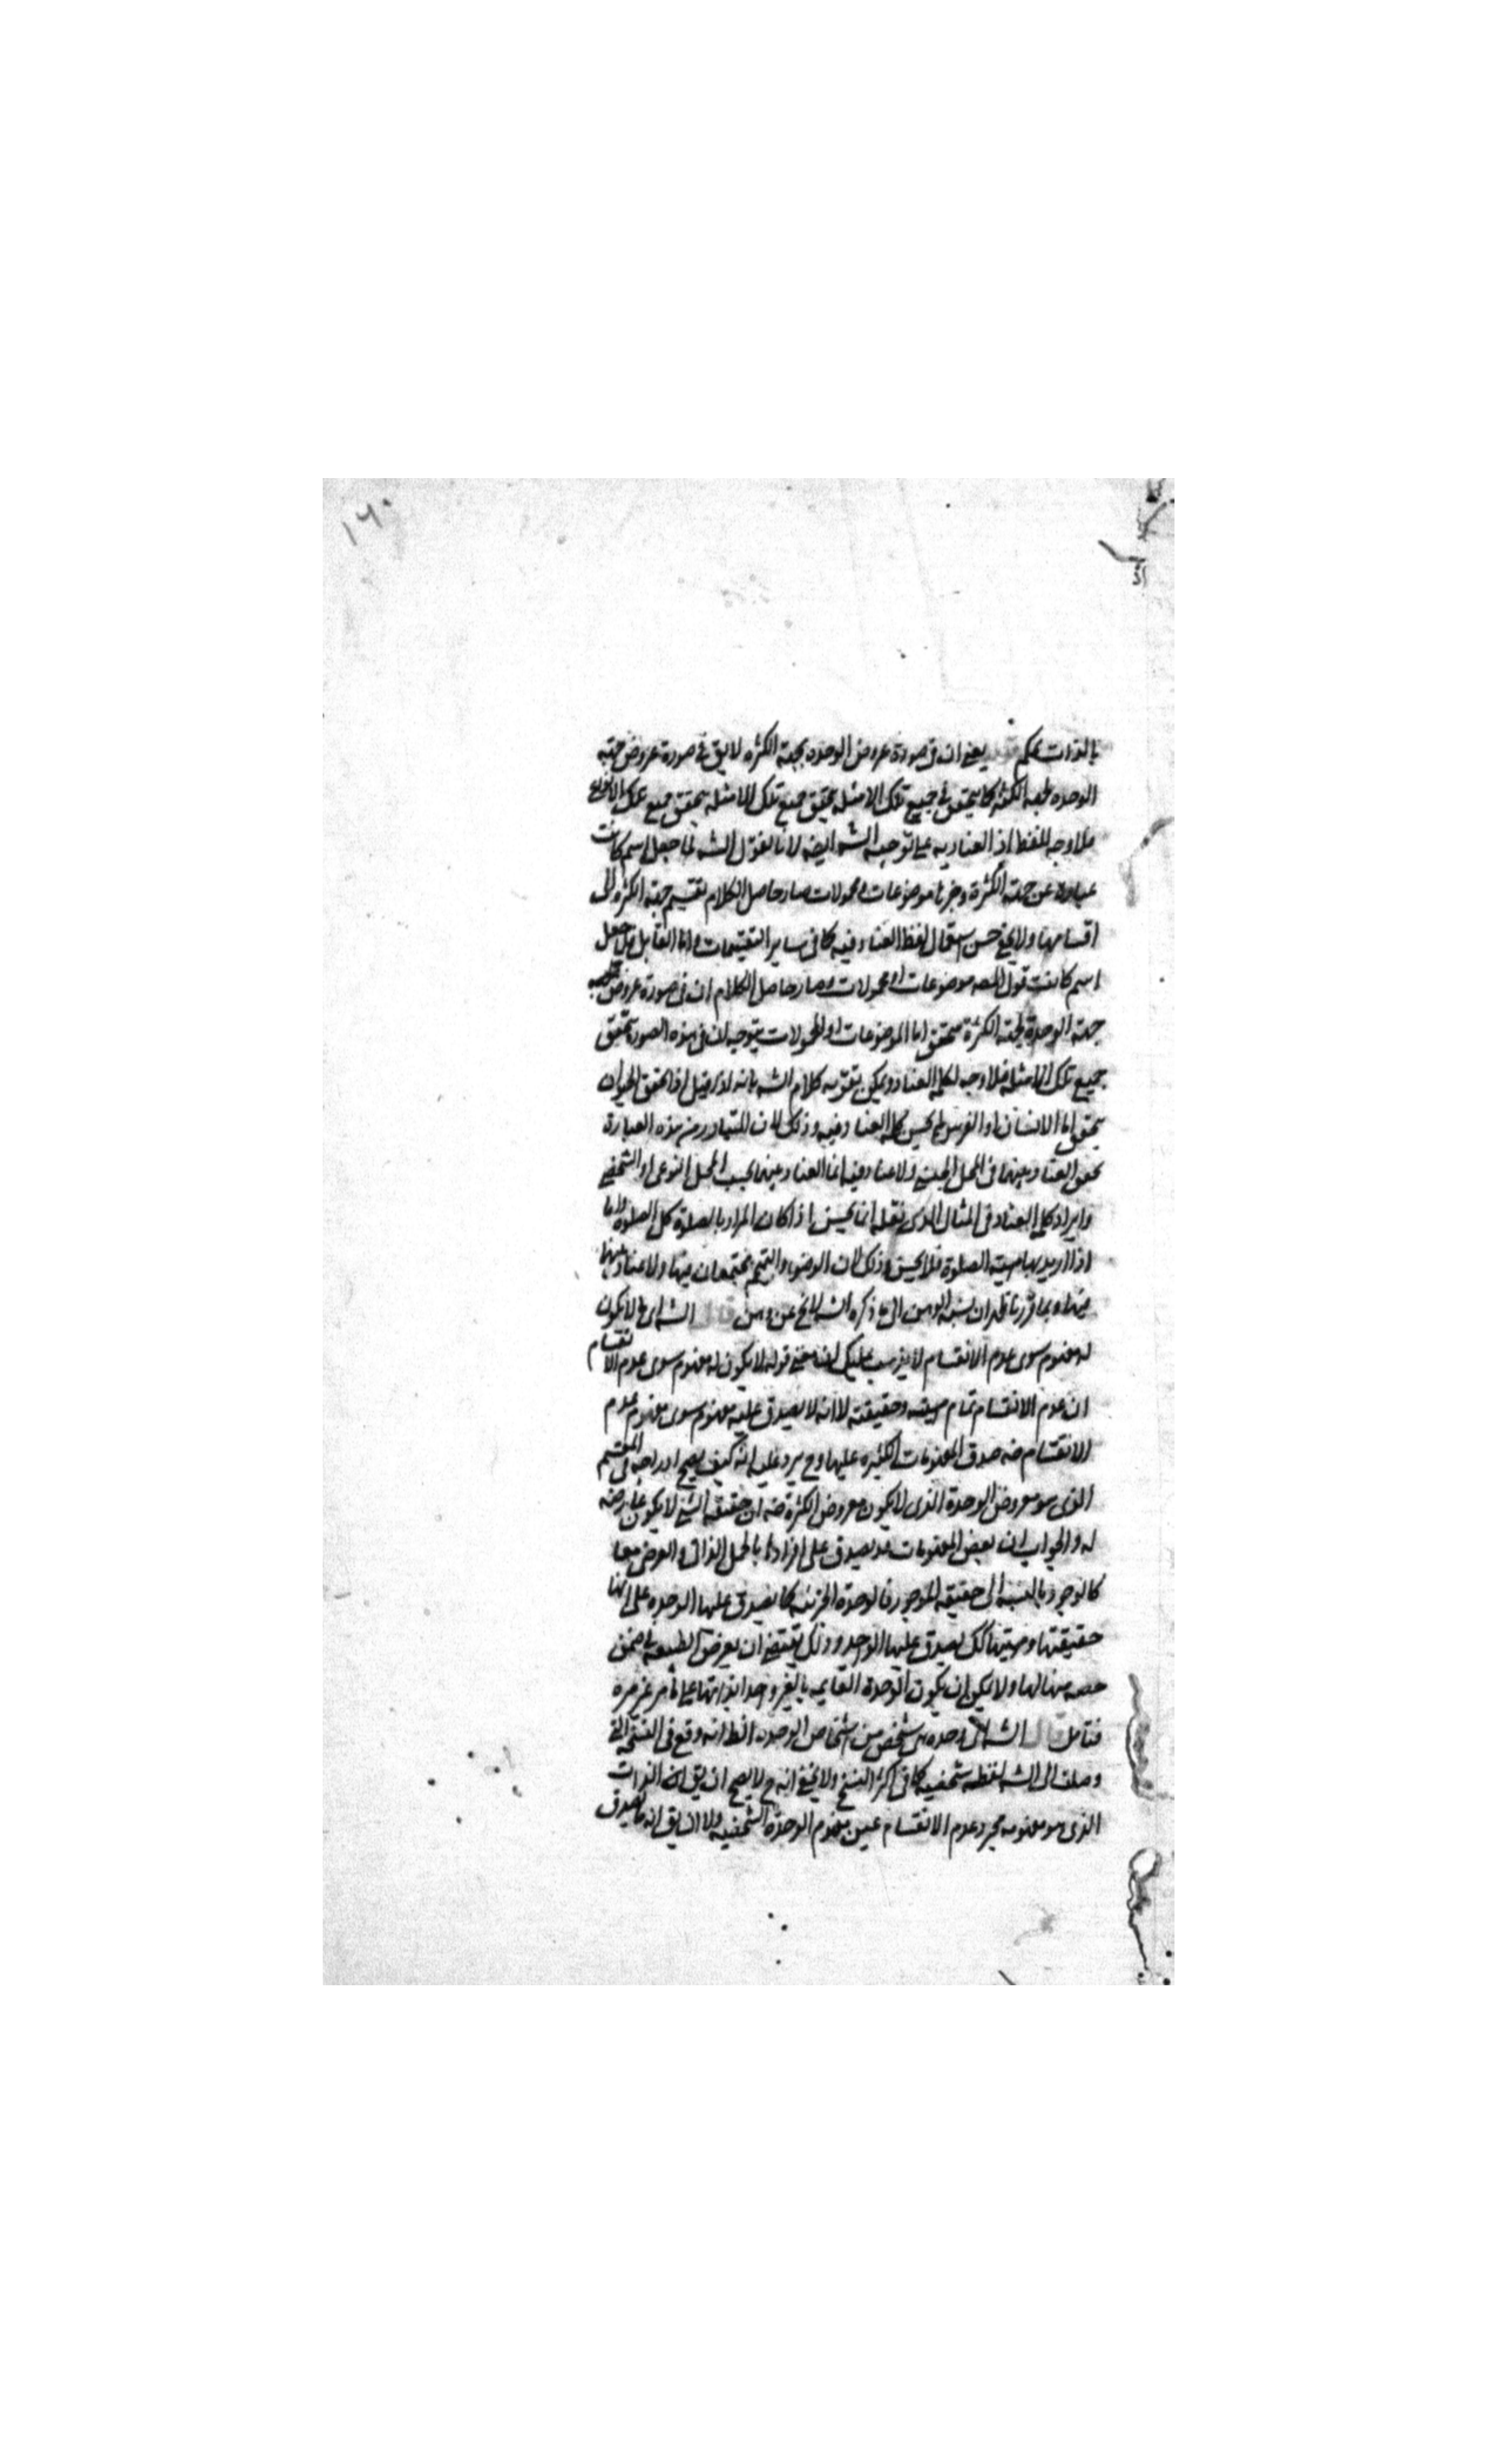 ١٦٠
بالذات تحكم يعني ان في صورة عروض الوحده لجهة الكثره لايق في صورة عروض جهة
الوحده لجهة الكثره كما يتحقق في جميع تلك الامثله يتحقق جميع تلك الامثله يتحقق جميع تلك الانواع
فلا وجه للفظ اذ العناديه على توجيه الشه ايضه لانا نقول الشه لما جعل اسم كانت
عبارة عن جهة الكثرة وخبرها موضوعات او محمولات صار حاصل الكلام تقسيم جهة الكثره الى
اقسامها ولا يخفى حسن استعمال لفظ العناد فيه كما في ساير التقسيمات واما القايل فلما جعل
اسم كانت قول المصه موضوعات او محمولات وصار حاصل الكلام ان في صورة عروض
جهة الوحدة لجهة الكثرة يتحقق اما الموضوعات او المحمولات يتوجه ان في هذه الصورة يتحقق
جميع تلك الامثله فلا وجه لكلمة العناد ويمكن تقويه كلام الشه بانه اذا قيل اذا تحقق الحيوان
يتحقق اما الانسان او الفرس لم يحسن كلمة العناد فيه وذلك لان المتبادر من هذه العبارة
تحقق العناد بينهما في المحل الجنسي ولا عناد فيه انما العناد بينهما بحسب المحل النوعي او الشخصي
وايراد كلمة العناد في المثال الذي نقله انما يحسن اذا كان المراد بالصلوة كل الصلوة واما
اذا اريد بها مهية الصلوة فلا يحسن وذلك لان الوضوء والتيمم يجتمعان فيها ولا عناد بينهما
فيها وبما قررنا ظهر ان نسبة الوهن الى ما ذكره الشه لا يخ عن وهن قال الشه اي لا يكون
له مفهوم سوى عدم الانقسام لا يذهب عليك ان معنى قوله لا يكون له مفهوم سوى عدم الانقسام
ان عدم الانقسام تمام مهيته وحقيقته لا انه لا يصدق عليه مفهوم سوى مفهوم عدم
الانقسام ضه صدق المفهومات الكثيره عليها وح يرد عليه انه كيف يصح ادراجه في المقسم
الذي هو معروض الوحدة الذي لا يكون معروض الكثرة ضه ان حقيقة الشي لا يكون عارضه
له والجواب ان بعض المفهومات قد يصدق على افراده بالحمل الذاتي والعرضي معا
كالوجود بالنسبه الى حقيقة الموجود فالوحدة الجزئيه كما يصدق عليها الوحده على انها
حقيقتها ومهيتها كك يصدق عليها الواحد وذلك يقتضي ان يعرض الطبيعه في ضمن
حصه منها لها ولا يمكن ان يكون الوحدة القايمه بالغير واحدا بذاتها على ما مر غير مره
فتامل قال الشه اي وحده هي شخص من اشخاص الوحده الظ انه وقع في النسخة التي
وصلت الى الشه لفظه شخصيه كما في اكثر النسخ ولا يخفى انه ح لا يصح ان يق ان الذات
الذي هو مفهومه مجرد عدم الانقسام عين مفهوم الوحدة الشخصيه ولا ان يق انه ما يصدق